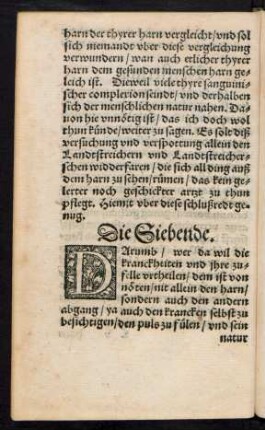 harn der thyrer harn vergleicht/ vnd sol
sich niemandt vber diese vergleichung
verwundern/ wan auch etlicher thyrer
harn dem gesunden menschen harn ge-
leich ist. Dieweil viele thyre sanguini-
scher complexion seindt/ vnd derhalben
sich der menschlichen natur nahen. Da-
uon hie vnnötig ist/ das ich doch wol
thun künde/ weiter zu sagen. Es sol diß
versuchung vnd verspottung allein den
Landtstreichern vnd Landtstreicher-
schen widderfaren/ die sich all ding auß
dem harn zu sehen/ rümen/ das kein ge-
lerter noch geschickter artzt zu thun
pflegt. Hiemit vber diese schlußredt ge-
nug.
Die Siebende.
DArumb/ wer da wil die
kranckheiten vnd jhre zu-
felle vrtheilen/ dem ist von
nöten/ nit allein den harn/
sondern auch den andern
abgang/ ya auch den krancken selbst zu
besichtigen/ den puls zu fülen/ vnd sein
natur